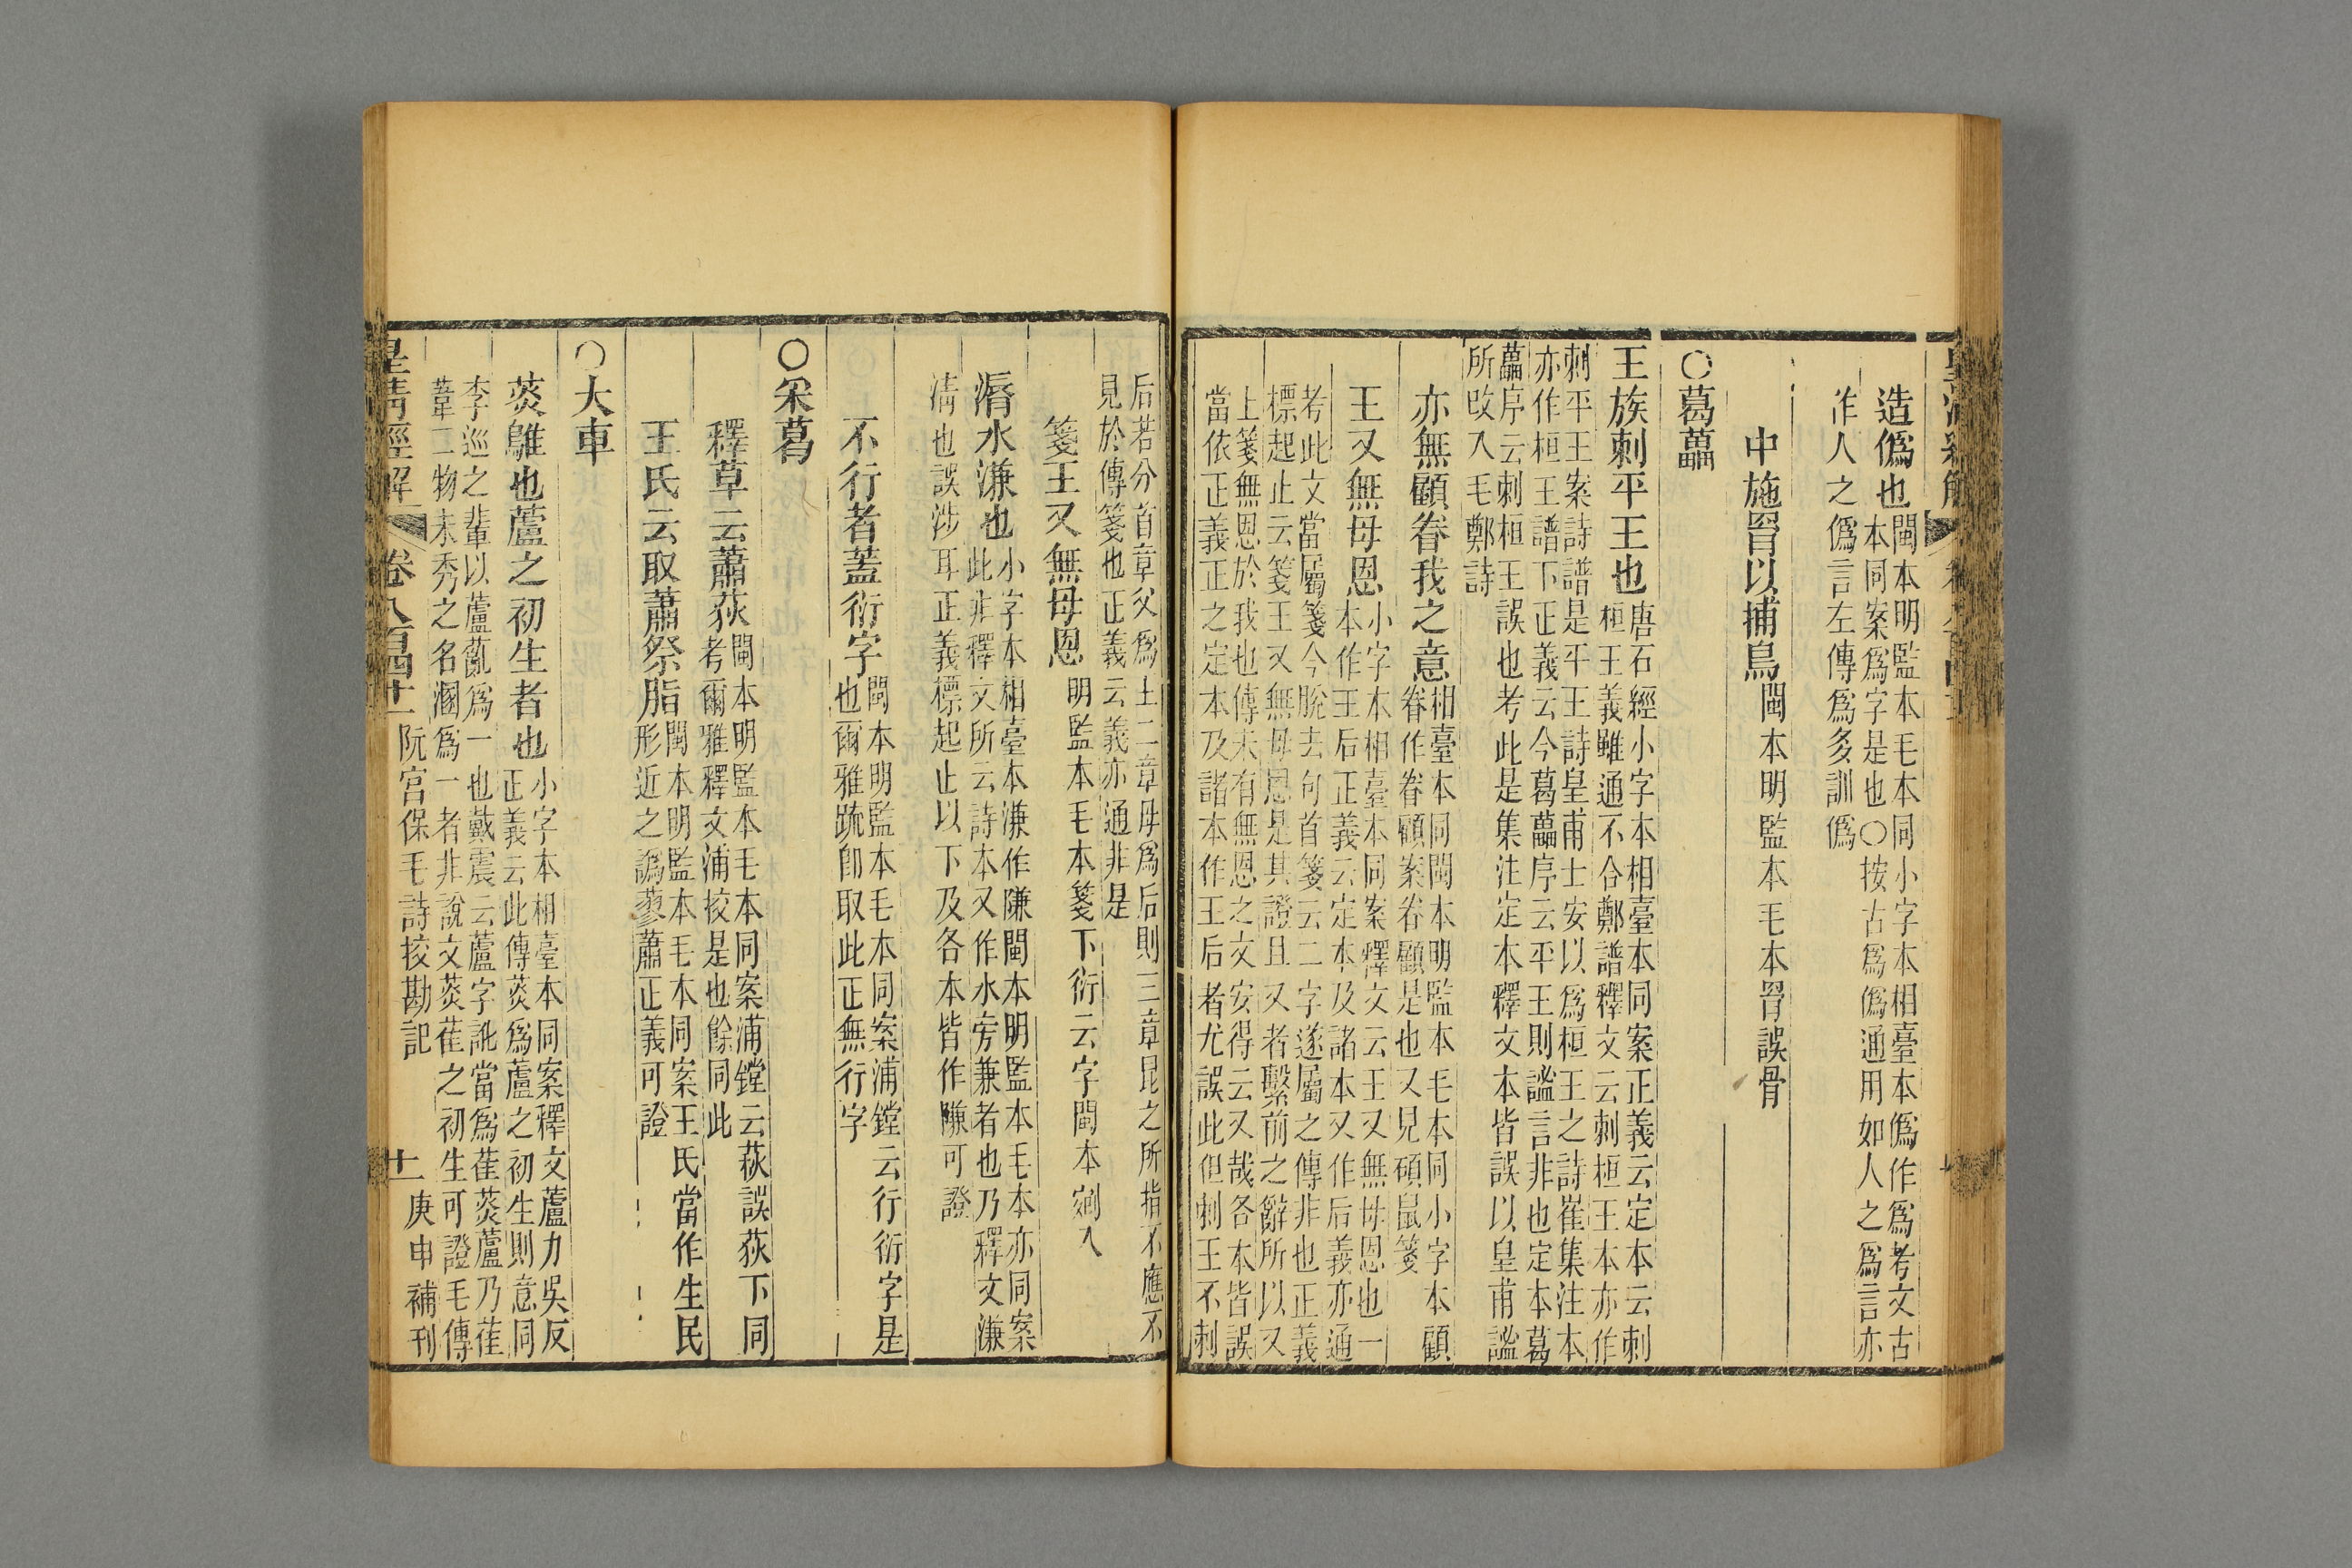 造僞也閩本明監本毛本同小字本相臺本僞作爲考文古
本同案爲字是也○按古爲僞通用如人之爲言亦
作人之僞言左傳爲多訓僞
中施罥以捕鳥閩本明監本毛本罥誤骨
○葛藟
王族刺平王也唐石經小字本相臺本同案正義云定本云刺
桓王義雖通不合鄭譜釋文云刺桓王本亦作
刺平王案詩譜是平王詩皇甫士安以爲桓王之詩崔集注本
亦作桓王譜下正義云今葛藟序云平王則謐言非也定本葛
藟序云刺桓王誤也考此是集注定本釋文本皆誤以皇甫謐
所改入毛鄭詩
亦無顧眷我之意相臺本同閩本明監本毛本同小字本顧
眷作眷顧案眷顧是也又見碩鼠箋
王又無母恩小字本相臺本同案釋文云王又無母恩也一
本作王后正義云定本及諸本又作后義亦通
考此文當屬箋今脫去句首箋云二字遂屬之傳非也正義
標起止云箋王又無母恩是其證且又者繫前之辭所以又
上箋無恩於我也傳未有無恩之文安得云又哉各本皆誤
當依正義正之定本及諸本作王后者尤誤此但刺王不刺
后若分首章父爲王二章母爲后則三章昆之所指不應不
見於傳箋也正義云義亦通非是
箋王又無母恩明監本毛本箋下衍云字閩本剜入
漘水溓也小字本相臺本溓作隒閩本明監本毛本亦同案
此非釋文所云詩本又作水旁兼者也乃釋文溓
清也誤涉耳正義標起止以下及各本皆作隒可證
不行者蓋衍字閩本明監本毛本同案浦鏜云行衍字是
也爾雅疏卽取此正無行字
○采葛
釋草云蕭荻閩本明監本毛本同案浦鏜云萩誤荻下同
考爾雅釋文浦挍是也餘同此
王氏云取蕭祭脂閩本明監本毛本同案王氏當作生民
形近之譌蓼蕭正義可證
○大車
菼鵻也蘆之初生者也小字本相臺本同案釋文蘆力吳反
正義云此傳菼爲蘆之初生則意同
李巡之輩以蘆薍爲一也戴震云蘆字訛當爲萑菼蘆乃萑
葦二物未秀之名溷爲一者非說文菼萑之初生可證毛傳
皇清經解 卷八百四十一 阮宮保毛詩挍勘記 十一 庚申補刊